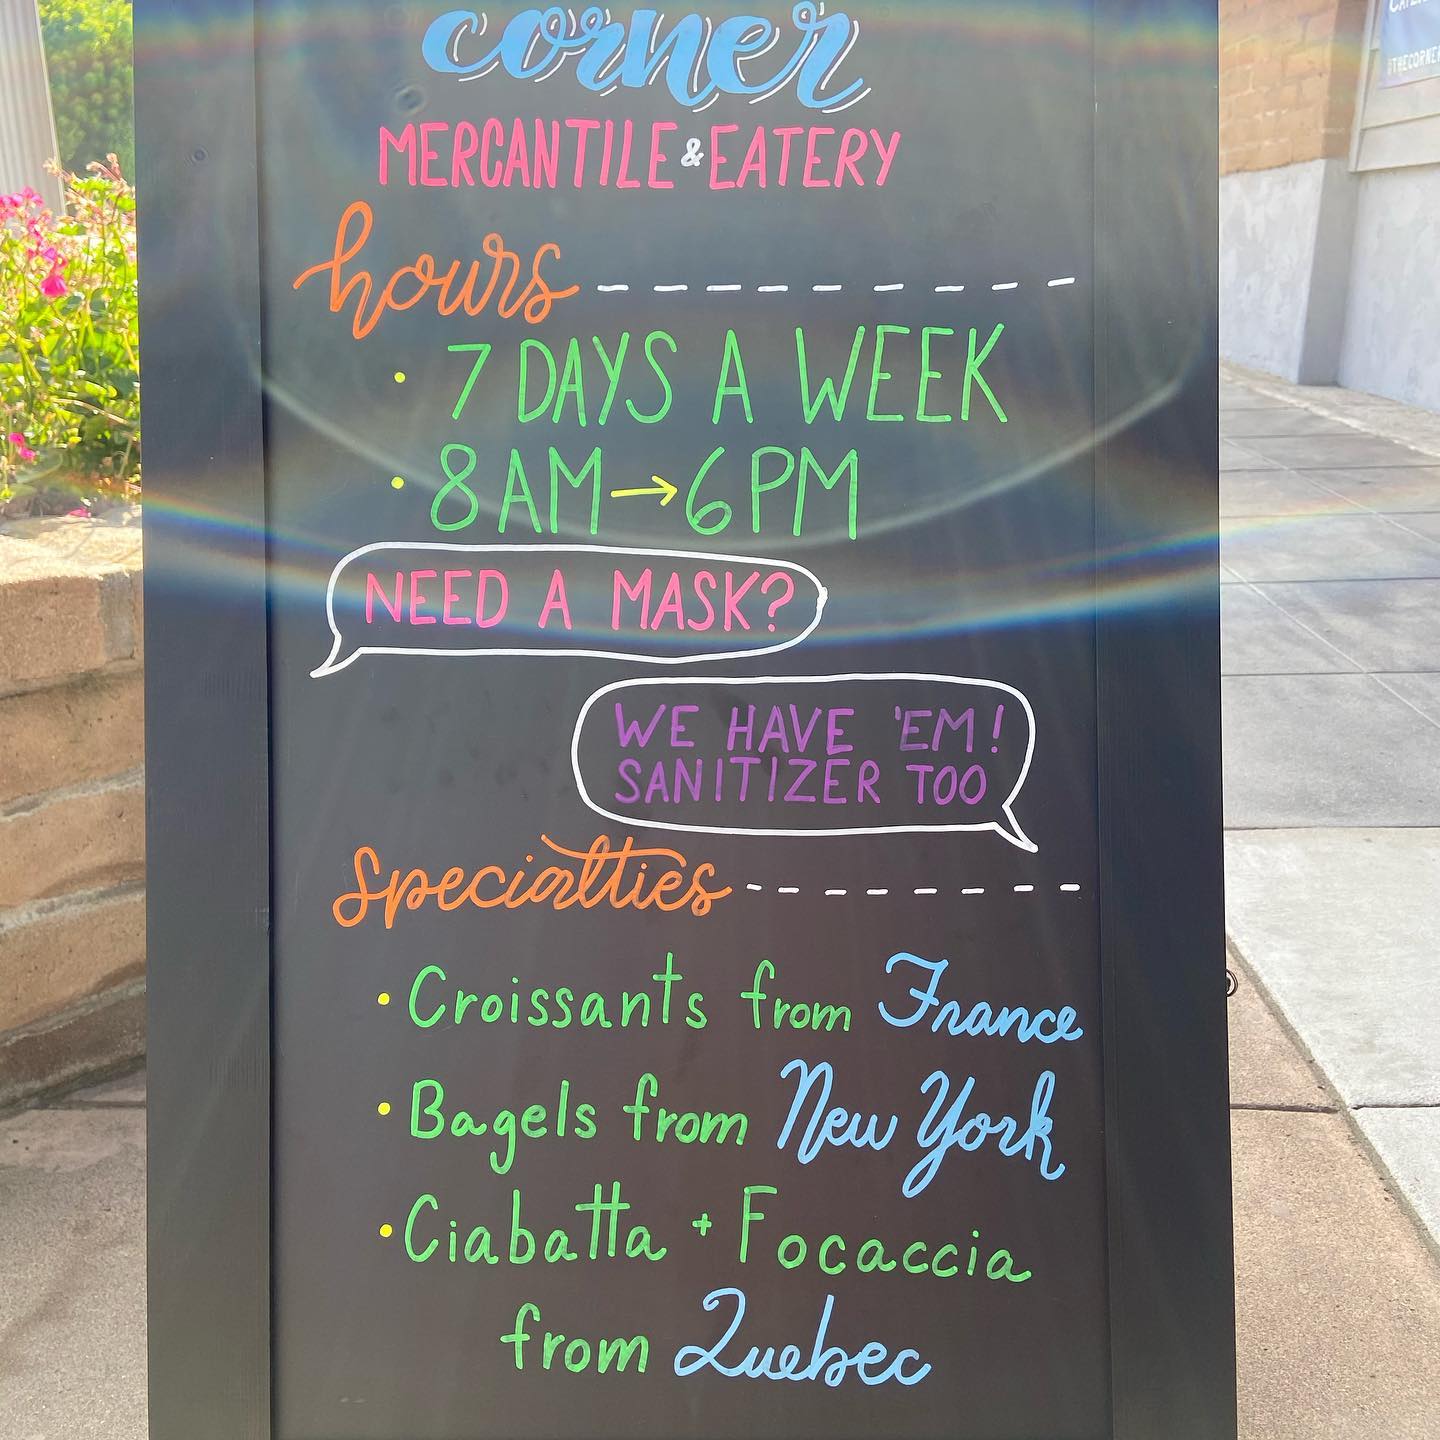 corner
MERCANTILE & EATERY
hours
• 7 DAYS A WEEK
• 8AM→6PM
NEED A MASK?
WE HAVE 'EM!
SANITIZER TOO
Specialtties
• Croissants from France
• Bagels from New York
• Ciabatta + Focaccia
from Quebec
#THECORNE